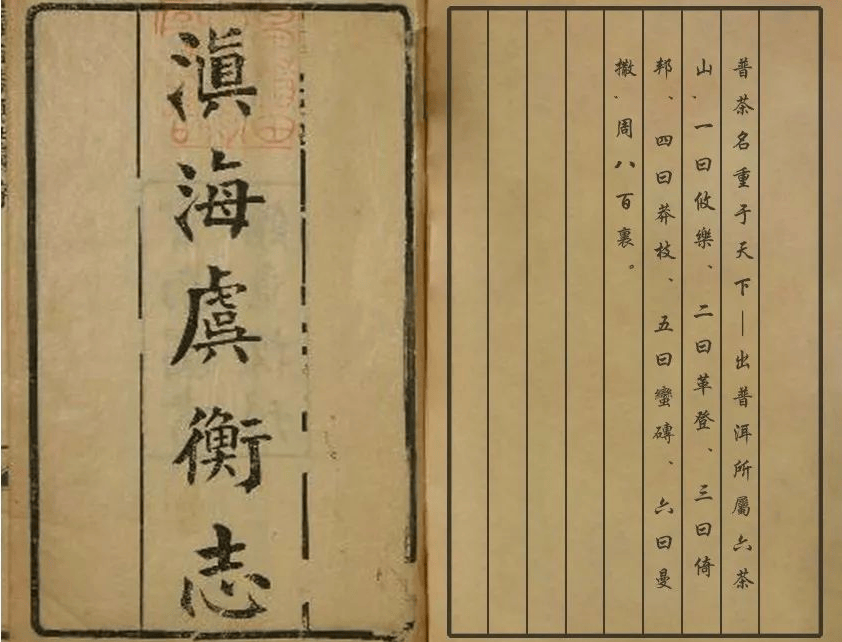 滇海虞衡志
普茶名重于天下—出普洱所屬六茶
山、一曰攸樂、二曰革登、三曰倚
邦、四曰莽枝、五曰蠻磚、六曰曼
撒、周八百裏。